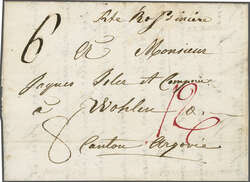 6
A Monsieur
Jaques Isler et Compagnie
à Wohlen
8
Canton Argovie